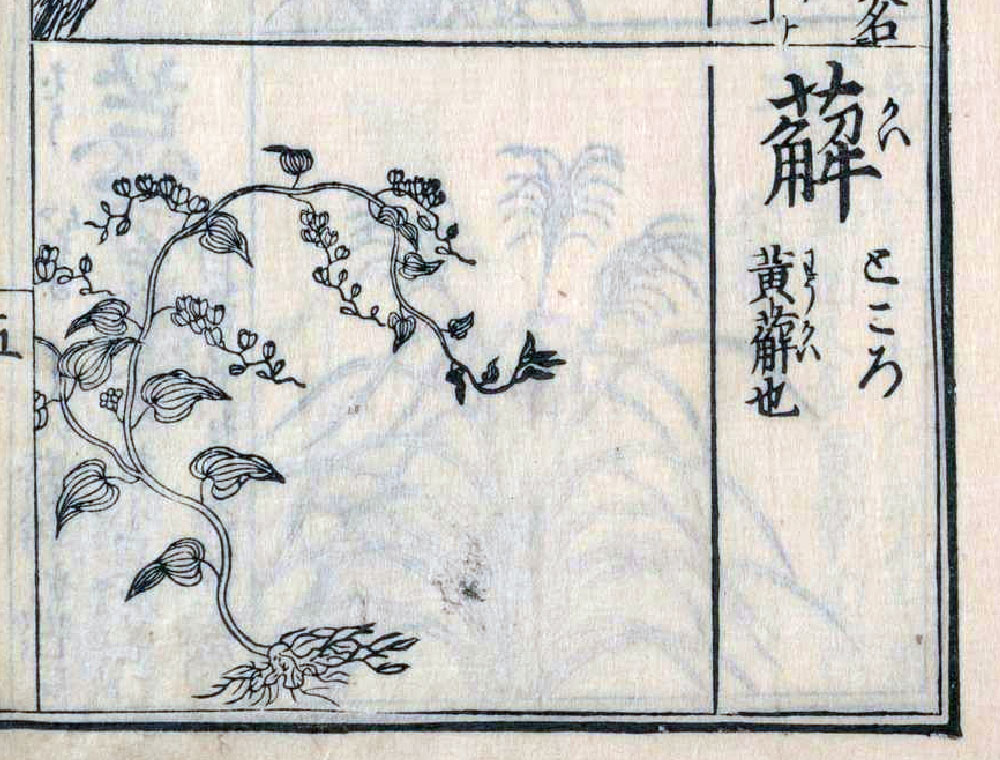 薢
かい
ところ
黄薢也
わうかい
五